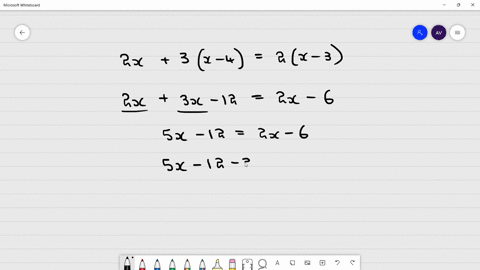 Microsoft Whiteboard
AV
2x + 3(x-4) = 2(x-3)
2x + 3x - 12 = 2x - 6
5x - 12 = 2x - 6
5x - 12 -